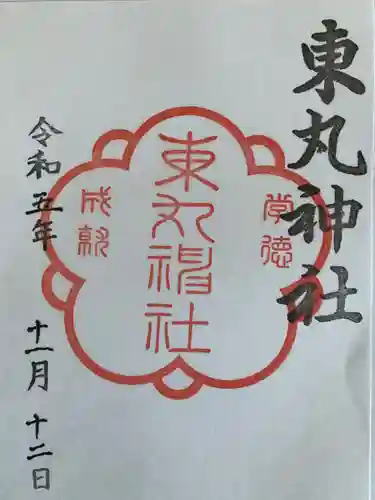 東丸神社
学徳
東丸神社
成就
令和五年 十一月 十二日